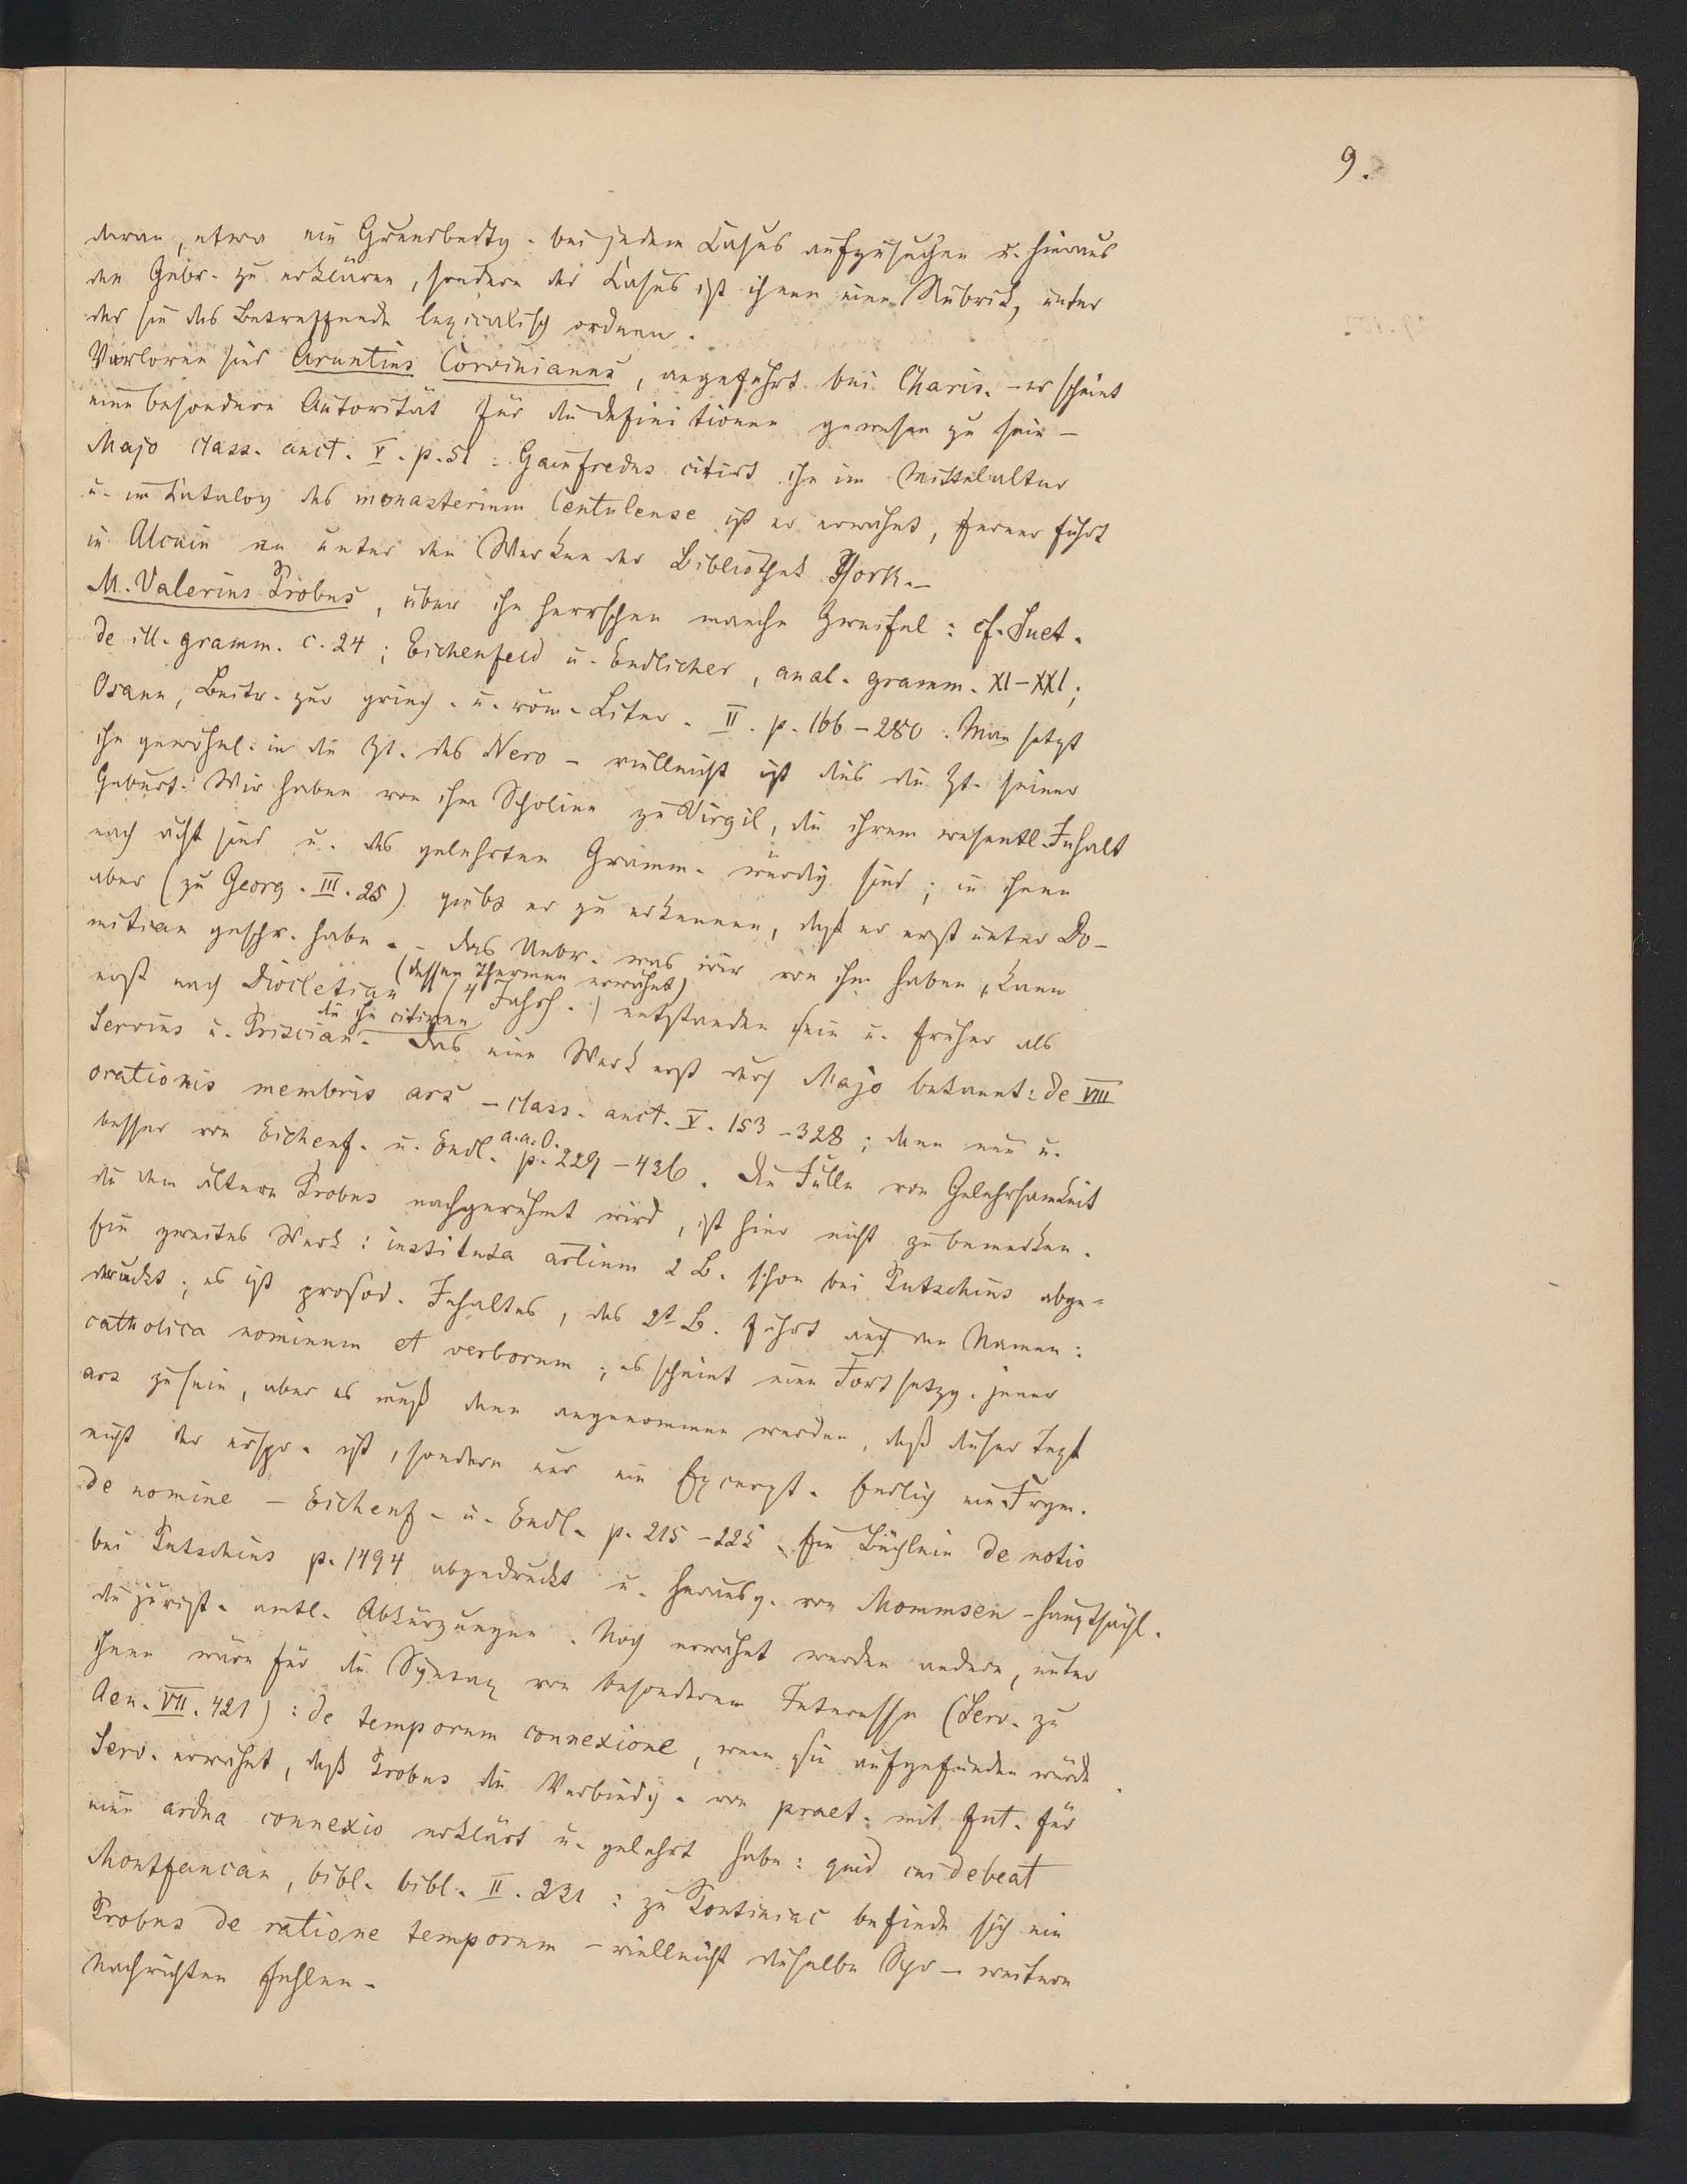 9.
daran, etwa ein Grundbedtg. bei jedem Casus aufzusuchen u. hieraus
den Gebr. zu erklären, sondern der Casus ist ihnen eine Rubrik, unter
der sie das Betreffende lexicalisch ordnen.
Verloren sind Aruntius Corvinianus, angeführt bei Charis. – er scheint
eine besondere Autorität für die Definitionen gewesen zu sein –
Majo class. auct. V. p. 51: Gaufredus citirt ihn im Mittelalter
u. im Catalog des monasterium Centulense ist er erwähnt, ferner führt
in Alcuin an unter den Werken der Bibliothek York. –
M. Valerius Probus, über ihn herrschen manche Zweifel: cf. Suet.
de ill. gramm. c. 24; Eichenfeld u. Endlicher, anal. gramm. XI–XXI;
Osann, Beitr. zur griech. u. röm. Liter. II. p. 166–280. Man setzt
ihn gewöhnl. in die Zt. des Nero – vielleicht ist dies die Zt. seiner
Geburt. Wir haben von ihm Scholien zu Virgil, die ihrem wesentl. Inhalt
nach ächt sind u. des gelehrten Gramm. würdig sind; in ihnen
aber (zu Georg. III. 25) giebt er zu erkennen, daß er erst unter Do-
mitian geschr. habe. – Das Uebr. was wir von ihm haben, kann
(dessen Thermen erwähnt)
erst nach Diocletian (4 Jahrh.) entstanden sein u. früher als
die ihn citiren
Servius u. Priscian. Das eine Werk erst durch Majo bekannt: de VIII
orationis membris ars – class. auct. V. 153–328; dann neu u.
besser von Eichenf. u. Endl. a. a. O. p. 229–436. Die Fülle von Gelehrsamkeit
die dem ältern Probus nachgerühmt wird, ist hier nicht zu bemerken.
Ein zweites Werk: instituta artium 2 B. schon bei Putschius abge-
druckt; es ist prosod. Inhaltes, das 2t B. führt auch den Namen:
catholica nominum et verborum; es scheint eine Fortsetzg. jener
ars zu sein, aber es muß dann angenommen werden, daß dieser Text
nicht der urspr. ist, sondern nur ein Excerpt. Endlich ein Fragm.
de nomine – Eichenf. u. Endl. p. 215–225. Ein Büchlein de notis
bei Putschius p. 1494 abgedruckt u. herausg. von Mommsen – hauptsächl.
die jurist. amtl. Abkürzungen. Noch erwähnt werden andere, unter
ihnen wäre für die Syntax von besonderem Interesse (Serv. zu
Aen. VII. 421): de temporum connexione, wenn sie aufgefunden würde.
Serv. erwähnt, daß Probus die Verbindg. von praet. mit fut. für
eine ardua connexio erklärt u. gelehrt habe: quid cui debeat
Montfaucan, bibl. bibl. II. 231: zu Pontiniac befinde sich ein
Probus de ratione temporum – vielleicht dieselbe Schr – weitere
Nachrichten fehlen –